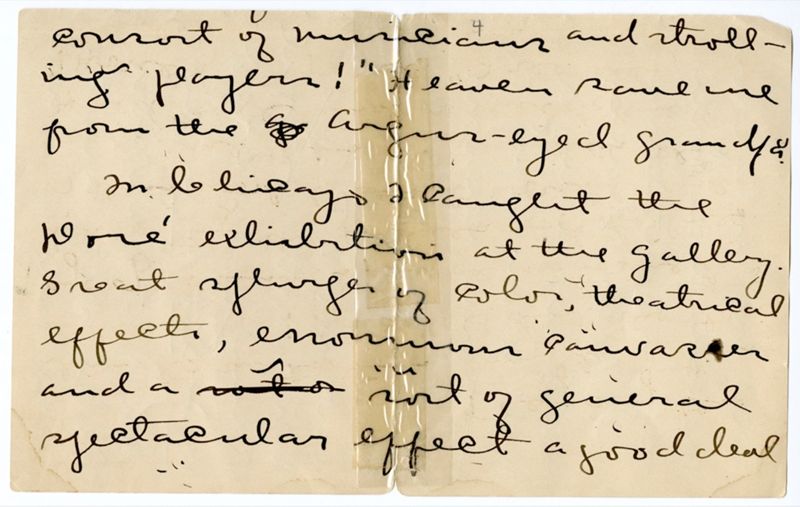 4
consort of musicians and stroll-
ing players!" Heaven save me
from the Argus-eyed grandpa.
In Chicago I caught the
Doré exhibition at the gallery.
Great splurges of color, theatrical
effects, enormous canvasses
and a sort of general
spectacular effect a good deal